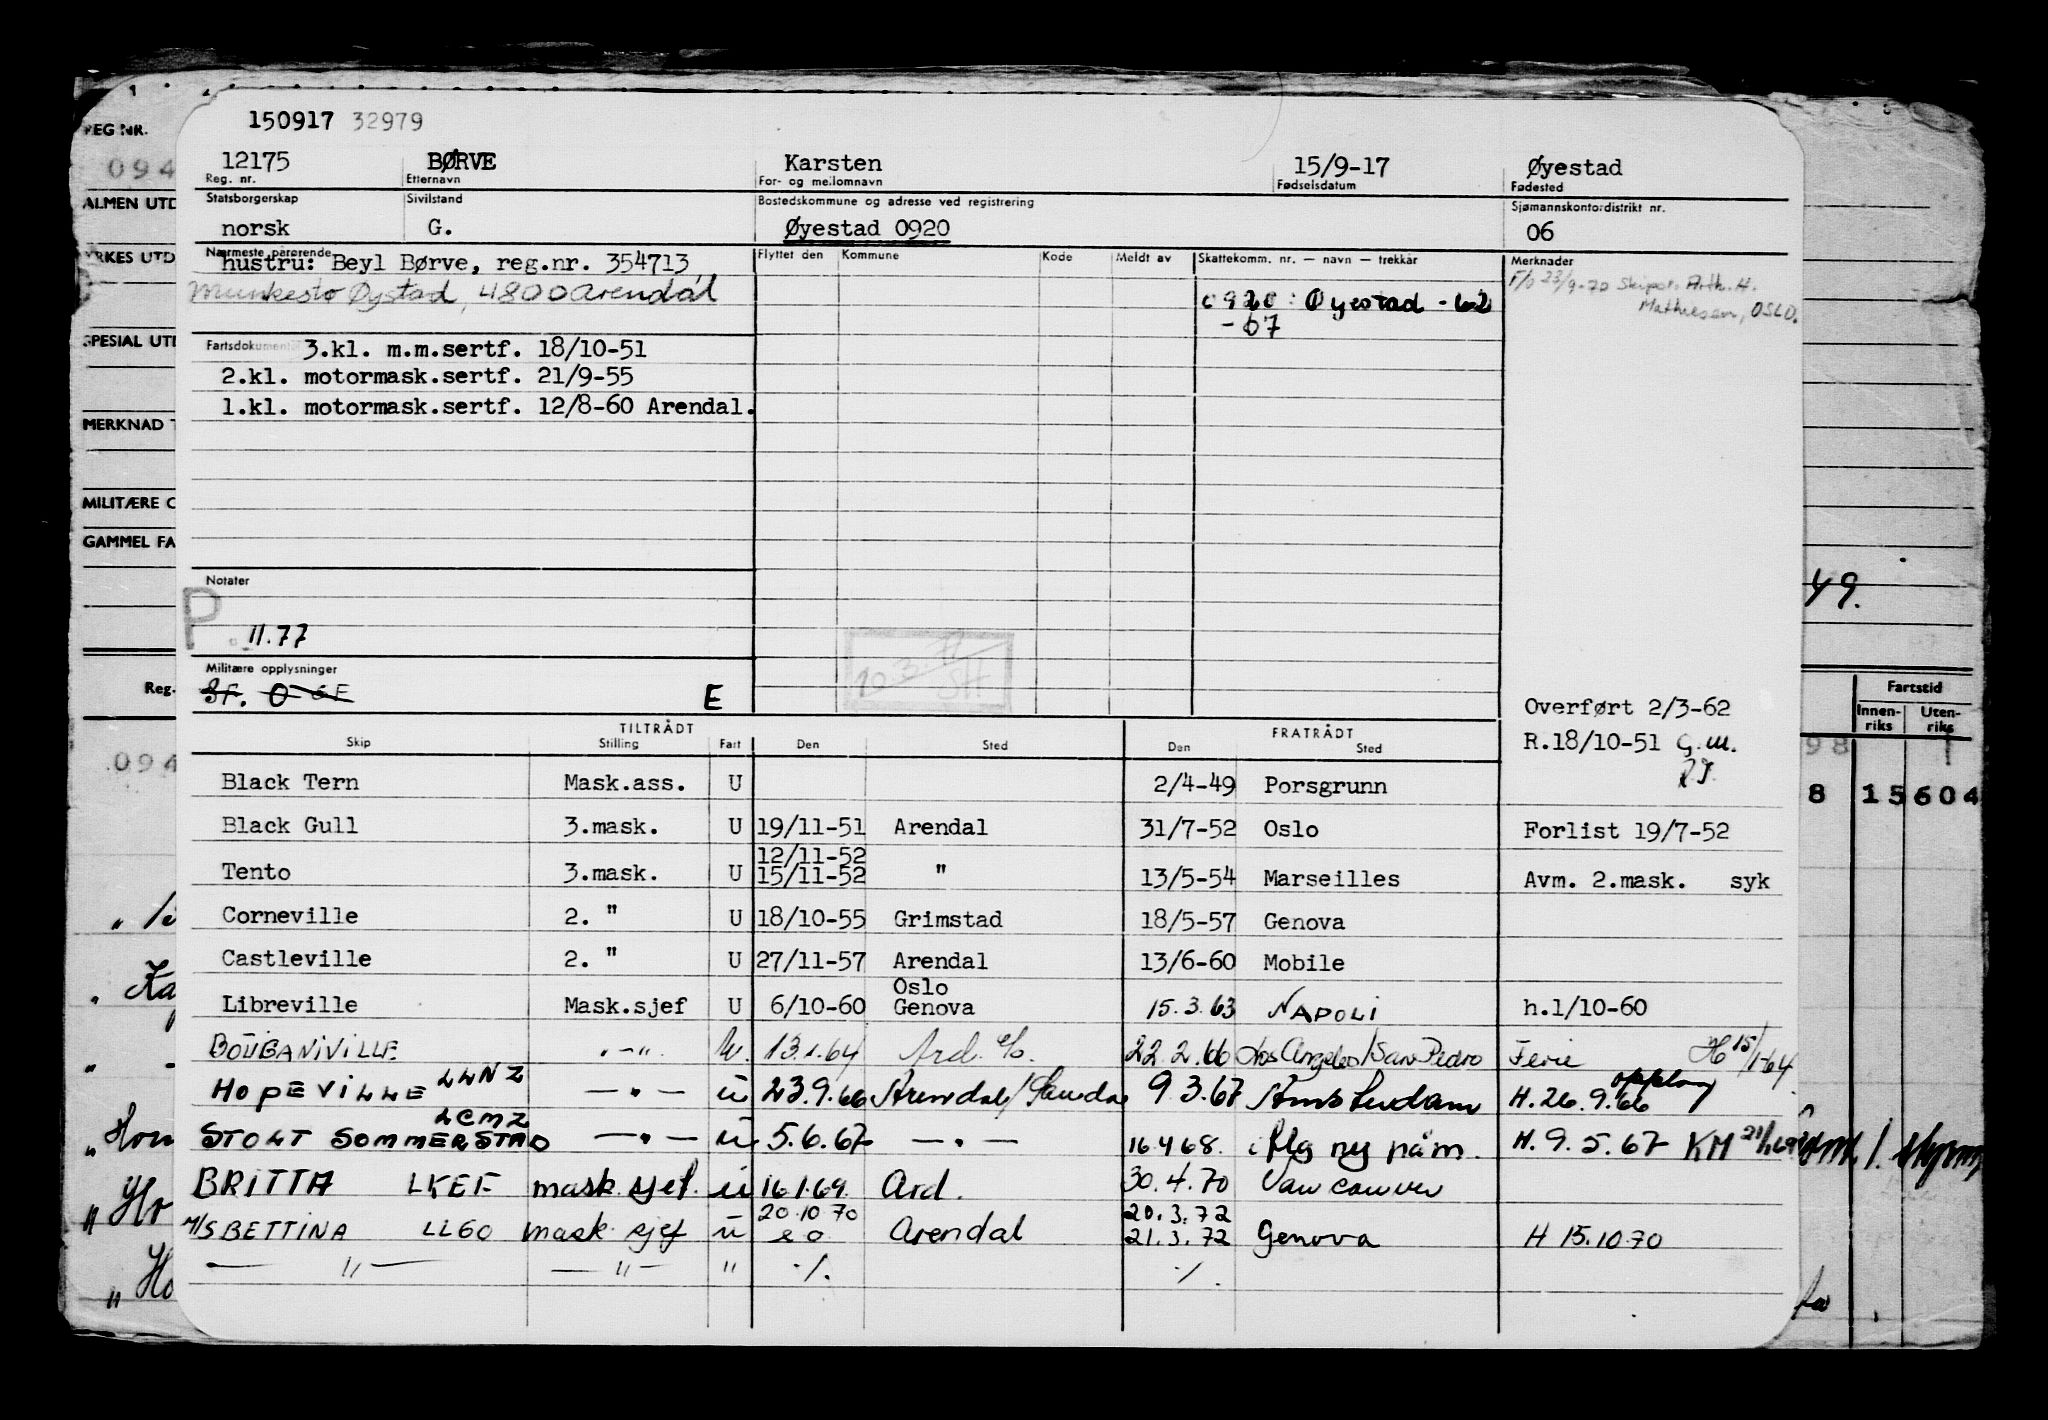 150917 32979
12175 BØRVE Karsten 15/9-17 Øyestad
Reg. nr. Etternavn For- og mellomnavn Fødselsdatum Fødested
Statsborgerskap Sivilstand Bostedskommune og adresse ved registrering Sjømannskontordistrikt nr.
norsk G. Øyestad 0920 06
Nærmeste pårørende Flyttet den Kommune Kode Meldt av Skattekomm. nr. — navn — trekkår Merknader
hustru: Beyl Børve, reg.nr. 354713
Munkestø Øystad, 4800 Arendal
0920 : Øyestad - 62
- 67
F/o 23/9-70 Skipsr. Arth. H.
Mathiesen, OSLO.
Fartsdokumenter 3.kl. m.m.sertf. 18/10-51
2.kl. motormask.sertf. 21/9-55
1.kl. motormask.sertf. 12/8-60 Arendal.
Notater
P. 11.77
Militære opplysninger
SF. O GF E
Overført 2/3-62
R.18/10-51 G.M.
TILTRÅDT FRATRÅDT
Skip Stilling Fart Den Sted Den Sted
Black Tern Mask.ass. U 2/4-49 Porsgrunn
Black Gull 3.mask. U 19/11-51 Arendal 31/7-52 Oslo Forlist 19/7-52
12/11-52
Tento 3.mask. U 15/11-52 " 13/5-54 Marseilles Avm. 2.mask. syk
Corneville 2. " U 18/10-55 Grimstad 18/5-57 Genova
Castleville 2. " U 27/11-57 Arendal 13/6-60 Mobile
Oslo
Libreville Mask.sjef U 6/10-60 Genova 15.3.63 NAPOLI h.1/10-60
BOUGANIVILLE " - " U. 13.1.64 Ard. e/o. 22.2.66 Los Angeles/San Pedro Ferie H 15/1-64
HOPEVILLE LLNZ — " — U 23.9.66 Arendal/ 9.3.67 Amsterdam H. 26.9.66
STOLT SOMMERSTAD LCMZ — " — U 5.6.67 — " — 16.4.68. H. 9.5.67 KM 21/1 69
BRITTA LKEF mask. sjef. U 16.1.69. Ard. 30.4.70 Vancouver
20.10.70 20.3.72
M/S BETTINA LLGO mask. sjef U e o Arendal 21.3.72 Genova H 15.10.70
— " — — " — " ./. ./.
REG NR.
094
ALMEN UTD
YRKES UTD
SPESIAL UTD
MERKNAD
MILITÆRE O
GAMMEL FA
Reg.
094
49.
Fartstid
Innen-riks Uten-riks
98
8 15 604